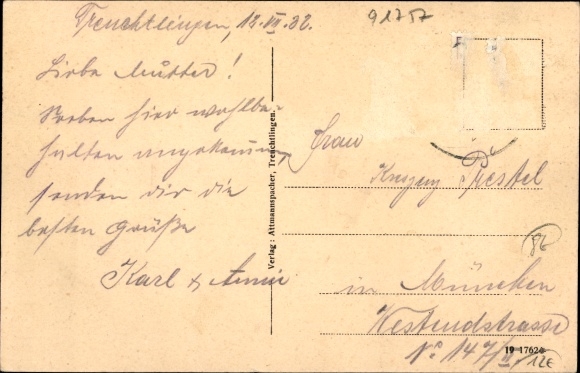 Treuchtlingen, 12.VII.32.
91757
Liebe Mutter!
Soeben hier wohlbe-
halten angekommen,
senden dir die
besten Grüße
Karl & Annie
Verlag: Attmannspacher, Treuchtlingen.
Frau
Trestel
in München
Westendstrasse
No. 147/II
19 1762
12E